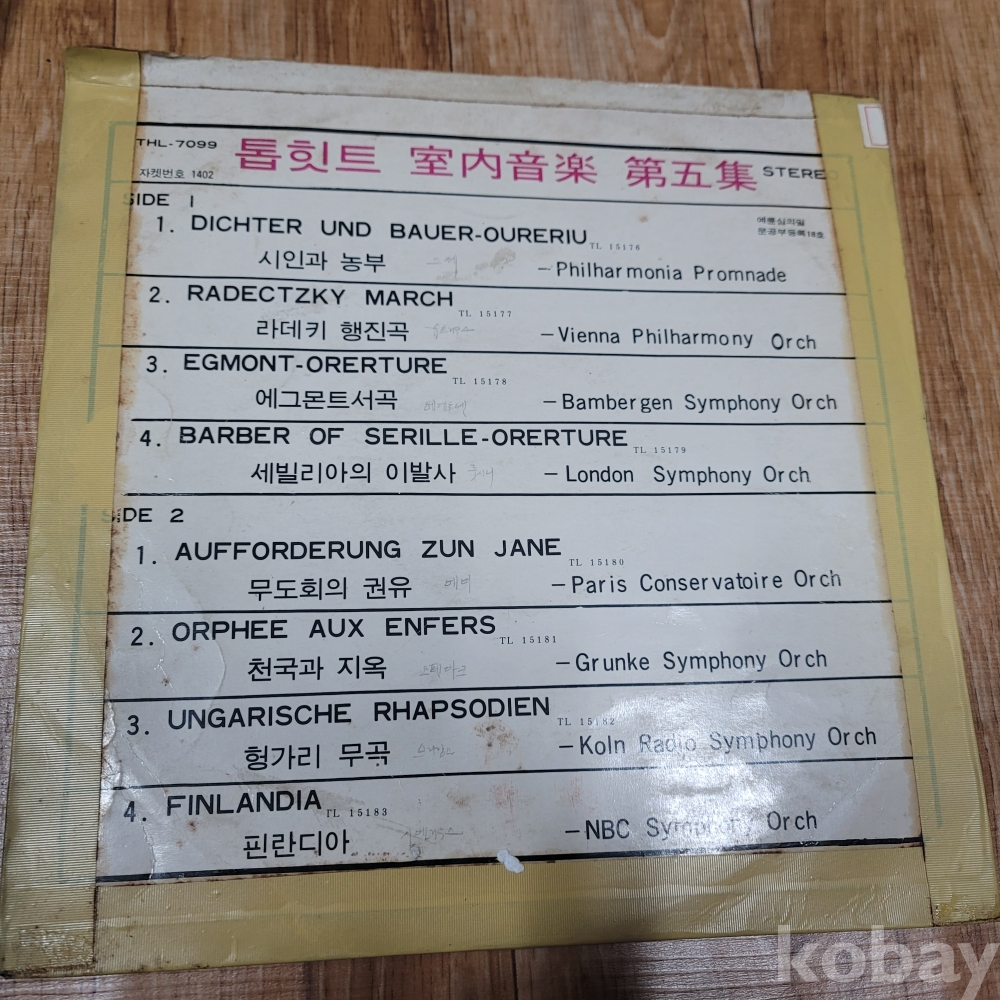 THL-7099 톱힛트 室内音楽 第五集 STEREO
자켓번호 1402
SIDE 1
예륜심의필
문공부등록18호
1. DICHTER UND BAUER-OURERIU TL 15176
시인과 농부 -Philharmonia Promnade
2. RADECTZKY MARCH TL 15177
라데키 행진곡 -Vienna Philharmony Orch
3. EGMONT-ORERTURE TL 15178
에그몬트서곡 -Bambergen Symphony Orch
4. BARBER OF SERILLE-ORERTURE TL 15179
세빌리아의 이발사 -London Symphony Orch
SIDE 2
1. AUFFORDERUNG ZUN JANE TL 15180
무도회의 권유 -Paris Conservatoire Orch
2. ORPHEE AUX ENFERS TL 15181
천국과 지옥 -Grunke Symphony Orch
3. UNGARISCHE RHAPSODIEN TL 15182
헝가리 무곡 -Koln Radio Symphony Orch
4. FINLANDIA TL 15183
핀란디아 -NBC Symphony Orch
kobay